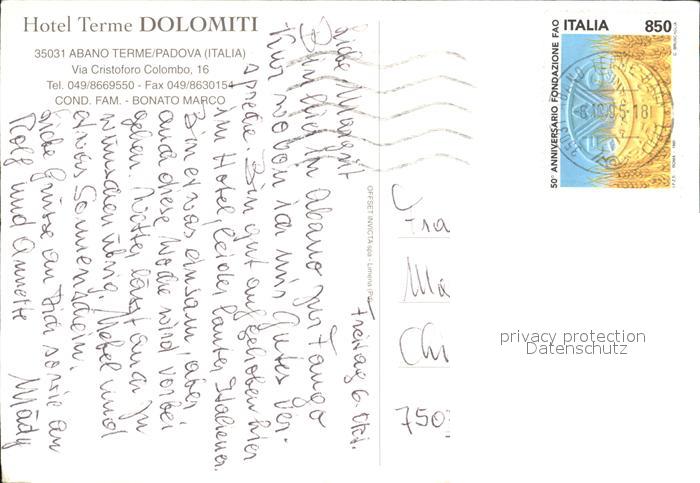 Hotel Terme DOLOMITI
35031 ABANO TERME/PADOVA (ITALIA)
Via Cristoforo Colombo, 16
Tel. 049/8669550 - Fax 049/8630154
COND. FAM. - BONATO MARCO
Freitag 6. Okt.
Liebe Margrit
Bin hier in Abano zur Fango
Kur wovon ich mir Gutes ver-
spreche. Bin gut aufgehoben hier
im Hotel, leider lauter Italiener.
Bin etwas einsam, aber
auch diese Woche wird vorbei
gehen. Wetter lässt auch zu
wünschen übrig. Nebel und
etwas Sonnenschein.
Liebe Grüsse an Dich sowie an
Rolf und Annette
Mädy
OFFSET INVICTA spa - Limena (Pd)
50° ANNIVERSARIO FONDAZIONE FAO
ITALIA 850
Fra
Ma
Chi
750
privacy protection
Datenschutz